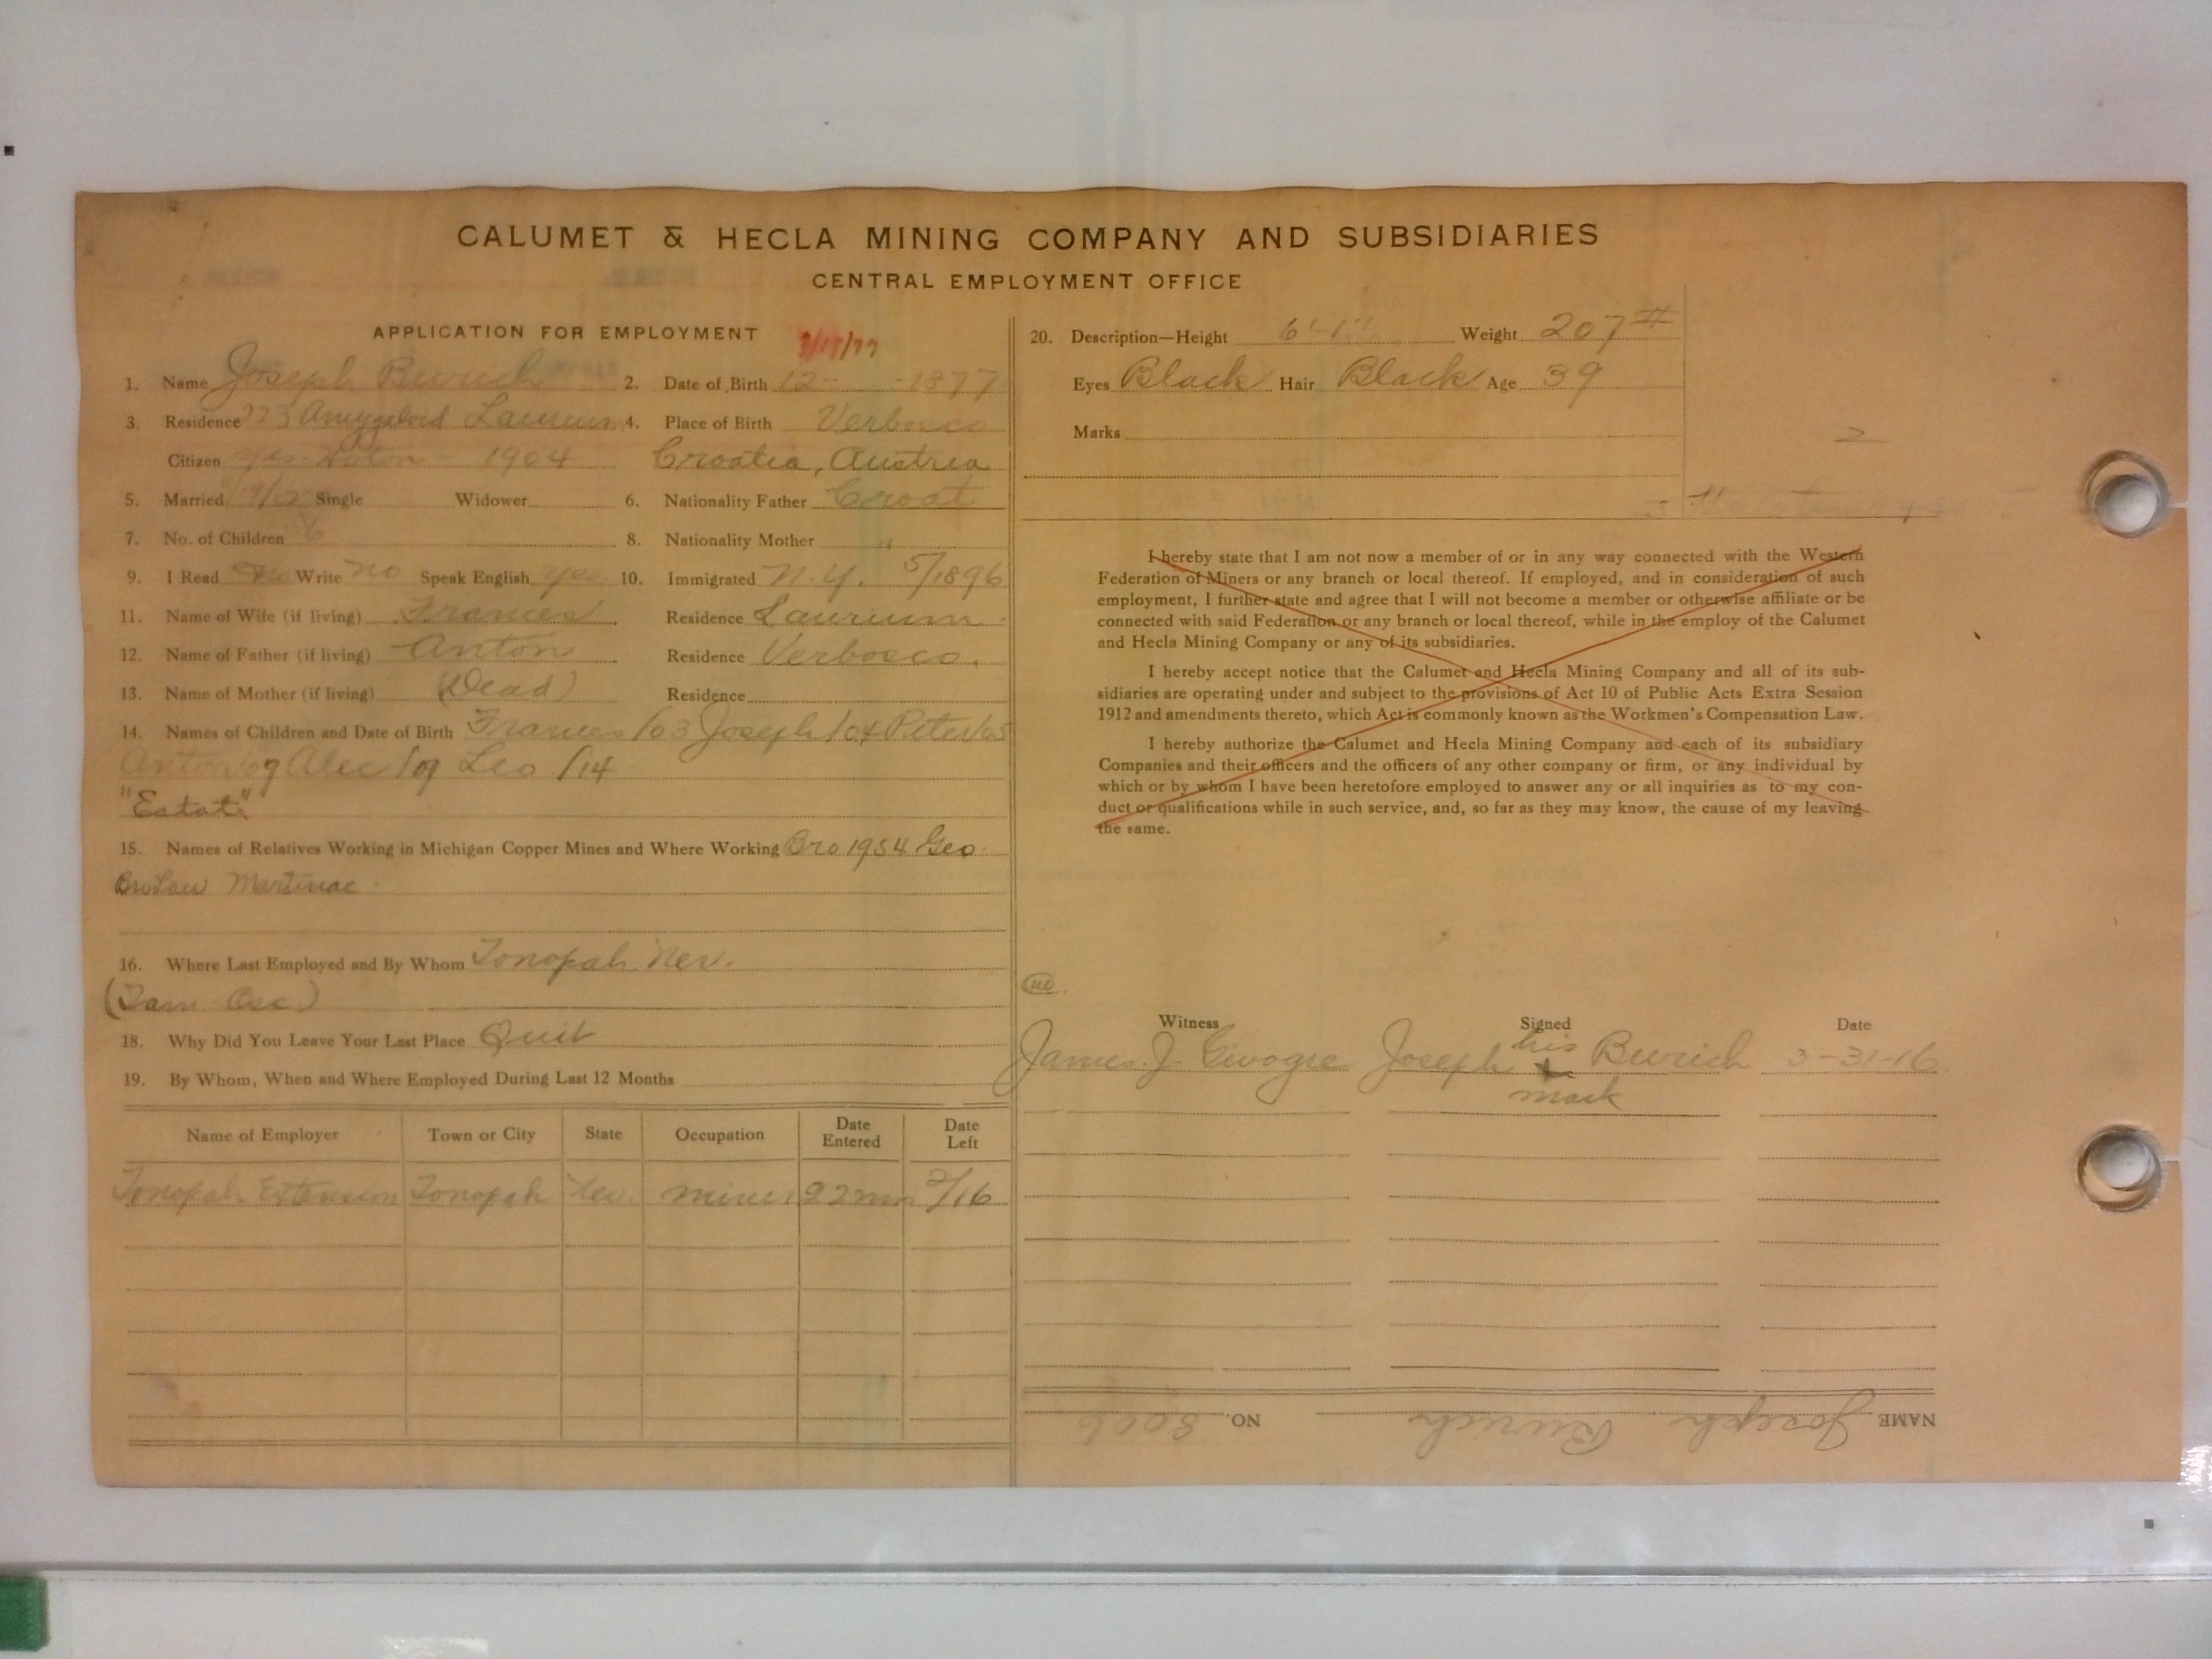 CALUMET & HECLA MINING COMPANY AND SUBSIDIARIES
CENTRAL EMPLOYMENT OFFICE
APPLICATION FOR EMPLOYMENT
1. Name Joseph Burich 2. Date of Birth 12- -1877
3. Residence 723 Amygdloid Laurium 4. Place of Birth Verbosco
Citizen yes. 1904 Croatia, Austria
5. Married Single Widower 6. Nationality Father Croat
7. No. of Children 6 8. Nationality Mother "
9. I Read no Write no Speak English yes 10. Immigrated N.Y. 5/1896
11. Name of Wife (if living) Frances Residence Laurium
12. Name of Father (if living) Anton Residence Verbosco.
13. Name of Mother (if living) (Dead) Residence
14. Names of Children and Date of Birth Frances /03 Joseph /04 Peter /05
Anton /09 Alec /09 Leo /14
"Estat"
15. Names of Relatives Working in Michigan Copper Mines and Where Working Bro 1954 Geo
BroLaw Martinac
16. Where Last Employed and By Whom Tonopah Nev.
(Tam Osc.)
18. Why Did You Leave Your Last Place Quit
19. By Whom, When and Where Employed During Last 12 Months
Name of Employer Town or City State Occupation Date Entered Date Left
Tonopah Extension Tonopah Nev. miner 22 2/16
20. Description—Height 6'-1" Weight 207#
Eyes Black Hair Black Age 39
Marks
I hereby state that I am not now a member of or in any way connected with the Western
Federation of Miners or any branch or local thereof. If employed, and in consideration of such
employment, I further state and agree that I will not become a member or otherwise affiliate or be
connected with said Federation or any branch or local thereof, while in the employ of the Calumet
and Hecla Mining Company or any of its subsidiaries.
I hereby accept notice that the Calumet and Hecla Mining Company and all of its sub-
sidiaries are operating under and subject to the provisions of Act 10 of Public Acts Extra Session
1912 and amendments thereto, which Act is commonly known as the Workmen's Compensation Law.
I hereby authorize the Calumet and Hecla Mining Company and each of its subsidiary
Companies and their officers and the officers of any other company or firm, or any individual by
which or by whom I have been heretofore employed to answer any or all inquiries as to my con-
duct or qualifications while in such service, and, so far as they may know, the cause of my leaving
the same.
Witness Signed Date
James J. Joseph his x mark Burich 3-31-16
NAME Joseph Burich NO. 8006